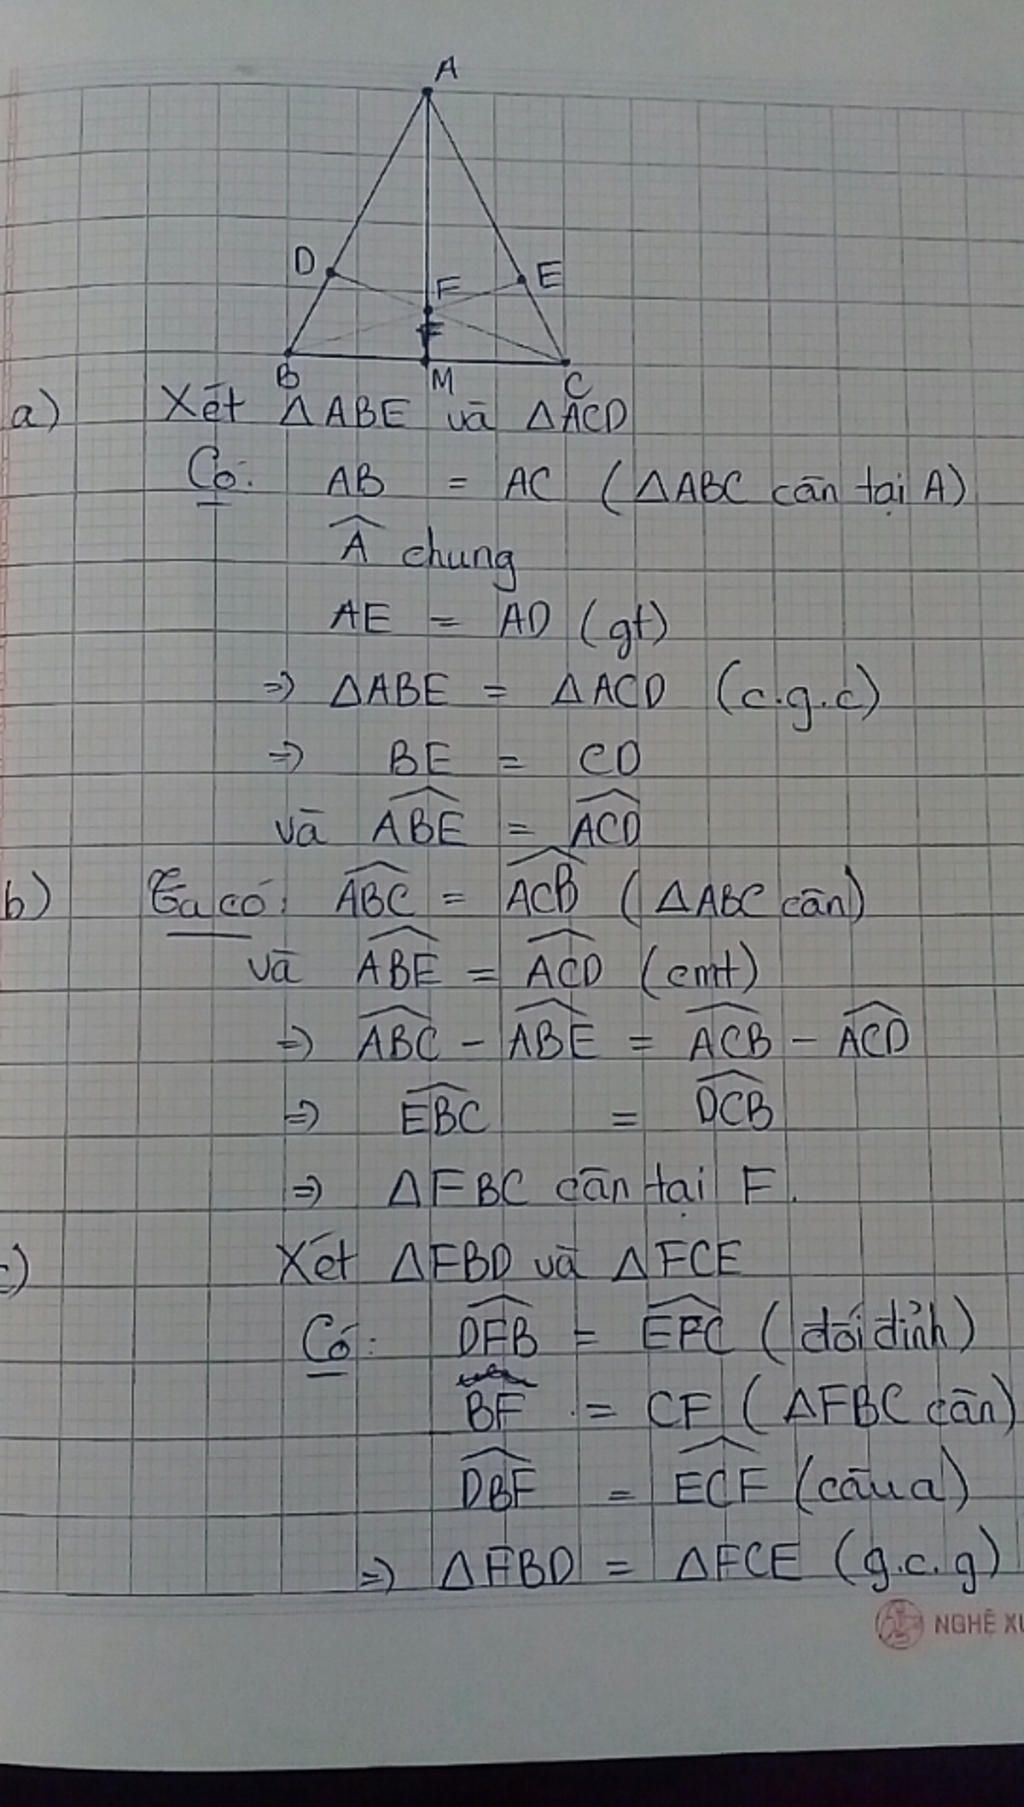 A
D
E
F
F
B
M
C
a) Xét ΔABE và ΔACD
Có: AB = AC (ΔABC cân tại A)
Â chung
AE = AD (gt)
=> ΔABE = ΔACD (c.g.c)
=> BE = CD
và ABE^ = ACD^
b) Ta có: ABC^ = ACB^ (ΔABC cân)
và ABE^ = ACD^ (cmt)
=> ABC^ - ABE^ = ACB^ - ACD^
=> EBC^ = DCB^
=> ΔFBC cân tại F.
c) Xét ΔFBD và ΔFCE
Có: DFB^ = EFC^ (đối đỉnh)
BF = CF (ΔFBC cân)
DBF^ = ECF^ (câu a)
=> ΔFBD = ΔFCE (g.c.g)
NGHỆ